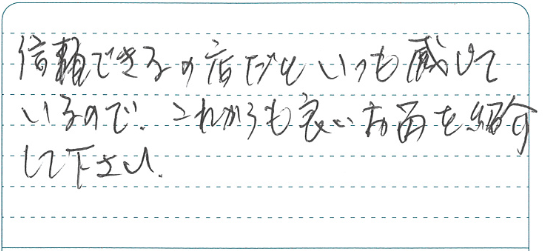 信頼できるの店だといつも感じて
いるので、これからも良いお品を紹介
して下さい.